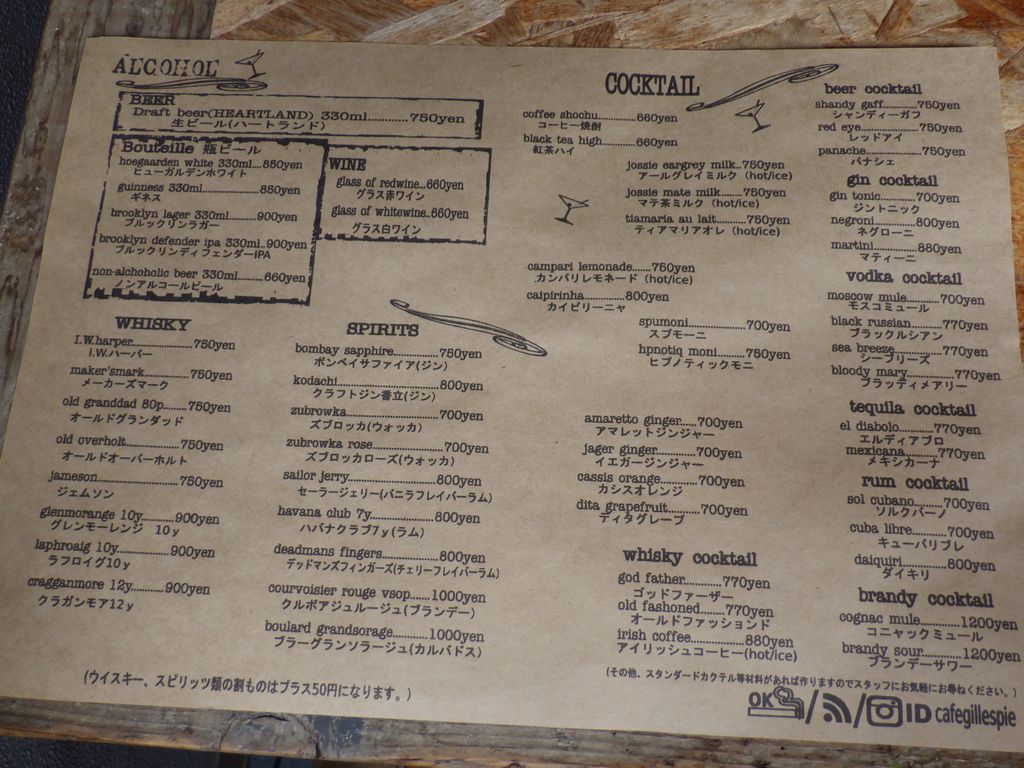 ALCOHOL
BEER
Draft beer(HEARTLAND) 330ml...........750yen
生ビール(ハートランド)
Bouteille 瓶ビール
hoegaarden white 330ml....860yen
ヒューガルデンホワイト
guinness 330ml.................850yen
ギネス
brooklyn lager 330ml.........900yen
ブルックリンラガー
brooklyn defender ipa 330ml..900yen
ブルックリンディフェンダーIPA
non-alchoholic beer 330ml.......660yen
ノンアルコールビール
WINE
glass of redwine...660yen
グラス赤ワイン
glass of whitewine...660yen
グラス白ワイン
WHISKY
I.W.harper......................750yen
I.W.ハーパー
maker'smark.................750yen
メーカーズマーク
old granddad 80p.......750yen
オールドグランダッド
old overholt.................750yen
オールドオーバーホルト
jameson.......................750yen
ジェムソン
glenmorange 10y..........900yen
グレンモーレンジ 10y
laphroaig 10y................900yen
ラフロイグ10y
cragganmore 12y..........900yen
クラガンモア12y
SPIRITS
bombay sapphire..............750yen
ボンベイサファイア(ジン)
kodachi...............................800yen
クラフトジン香立(ジン)
zubrowka............................700yen
ズブロッカ(ウォッカ)
zubrowka rose.....................700yen
ズブロッカローズ(ウォッカ)
sailor jerry..........................800yen
セーラージェリー(バニラフレイバーラム)
havana club 7y...................800yen
ハバナクラブ7y(ラム)
deadmans fingers...............800yen
デッドマンズフィンガーズ(チェリーフレイバーラム)
courvoisier rouge vsop......1000yen
クルボアジュルージュ(ブランデー)
boulard grandsorage...........1000yen
ブラーグランソラージュ(カルバドス)
(ウイスキー、スピリッツ類の割ものはプラス50円になります。)
COCKTAIL
coffee shochu...........660yen
コーヒー焼酎
black tea high..........660yen
紅茶ハイ
jossie eargrey milk..750yen
アールグレイミルク (hot/ice)
jossie mate milk.......750yen
マテ茶ミルク (hot/ice)
tiamaria au lait........750yen
ティアマリアオレ (hot/ice)
campari lemonade....750yen
カンパリレモネード (hot/ice)
caipirinha...........800yen
カイピリーニャ
spumoni..............700yen
スプモーニ
hpnotiq moni.......750yen
ヒプノティックモニ
amaretto ginger....700yen
アマレットジンジャー
jager ginger..........700yen
イエガージンジャー
cassis orange..........700yen
カシスオレンジ
dita grapefruit........700yen
ディタグレープ
whisky cocktail
god father...........770yen
ゴッドファーザー
old fashoned.......770yen
オールドファッションド
irish coffee..............880yen
アイリッシュコーヒー(hot/ice)
beer cocktail
shandy gaff..........750yen
シャンディーガフ
red eye................750yen
レッドアイ
panache..............750yen
パナシェ
gin cocktail
gin tonic..........700yen
ジントニック
negroni...........800yen
ネグローニ
martini............880yen
マティーニ
vodka cocktail
moscow mule..........700yen
モスコミュール
black russian..........770yen
ブラックルシアン
sea breeze..............770yen
シーブリーズ
bloody mary............770yen
ブラッディメアリー
tequila cocktail
el diabolo..........770yen
エルディアブロ
mexicana..........770yen
メキシカーナ
rum cocktail
sol cubano.........700yen
ソルクバーノ
cuba libre..........700yen
キューバリブレ
daiquiri.............800yen
ダイキリ
brandy cocktail
cognac mule..........1200yen
コニャックミュール
brandy sour..........1200yen
ブランデーサワー
(その他、スタンダードカクテル等材料があれば作りますのでスタッフにお気軽にお尋ねください。)
OK / / ID cafegillespie